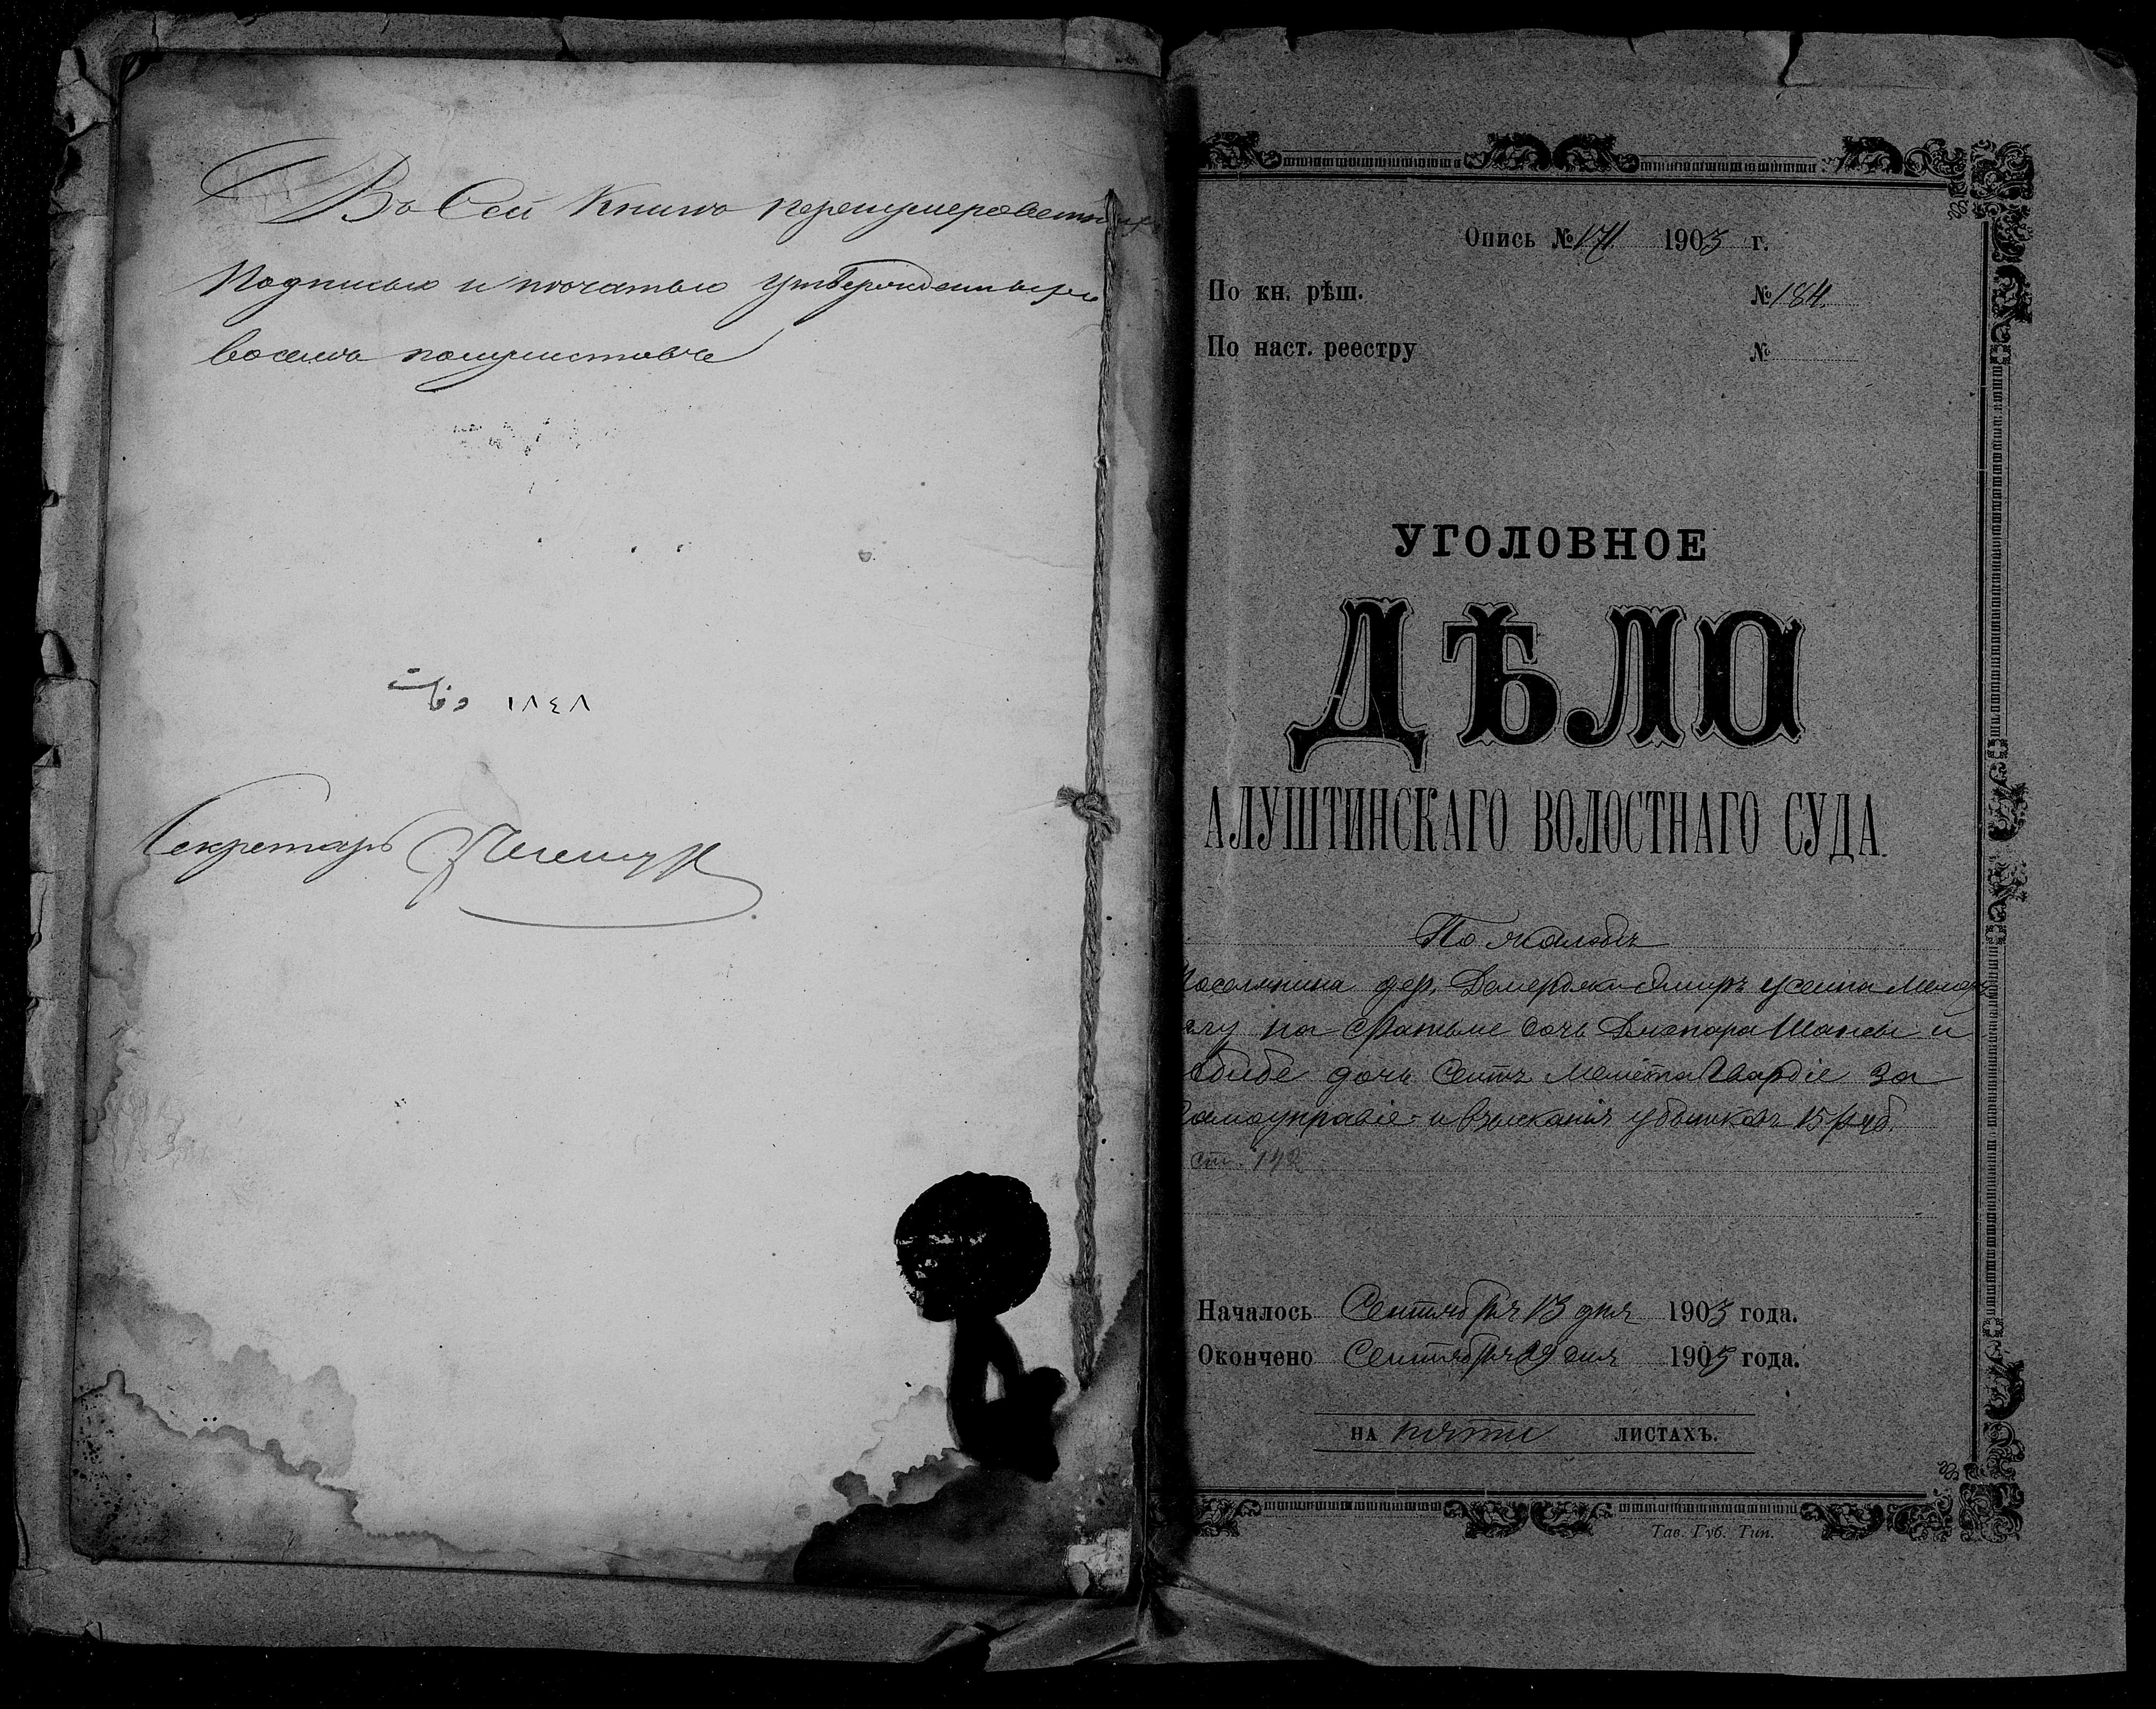 Въ Сей Книгѣ перенумерованныхъ
Подписью и печатью утвержденныхъ
восемь полулистовъ
١٨٤٨ وفات
Секретарь
Опись № 171 1903 г.
По кн. рѣш. № 184.
По наст. реестру №
УГОЛОВНОЕ
ДѢЛО
АЛУШТИНСКАГО ВОЛОСТНАГО СУДА.
По жалобѣ
Поселянина дер. Демерджи Эмиръ Усеина
оглу на Фатьме дочь и
дочь Сеитъ Мемета за
самоуправіе и взысканія убытковъ 15 руб.
ст. 142
Началось Сентября 13 дня 1903 года.
Окончено Сентября 29 дня 1903 года.
НА пяти ЛИСТАХЪ.
Тав. Губ. Тип.